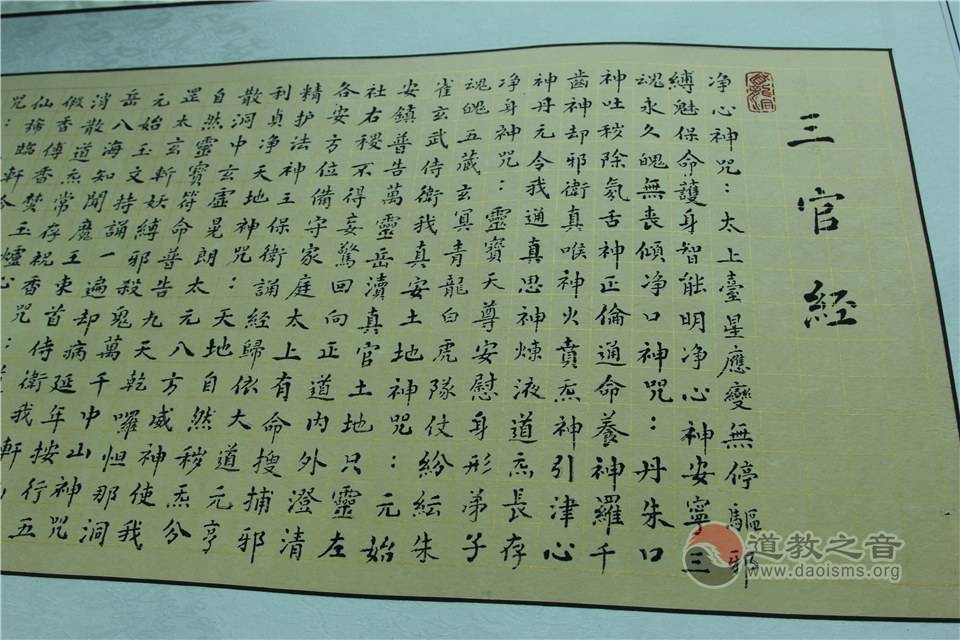 三官经
净心神咒：太上臺星應變無停驅邪
縛魅保命護身智能明净心神安寧三
魂永久魄無丧傾净口神咒：丹朱口
神吐秽除氛舌神正倫通命養神羅千
齒神却邪衛真喉神火賁炁神引津心
神丹元令我通真思神煉液道炁長存
净身神咒：靈寶天尊安慰身形弟子
魂魄五藏玄冥青龍白虎隊仗紛紜朱
雀玄武侍衛我真安土地神咒：元始
安鎮普告萬靈岳瀆真官土地只靈左
社右稷不得妄驚回向正道内外澄清
各安方位備守家庭太上有命搜捕邪
精護法神王保衛誦經歸依大道元亨
利貞净天地神咒：天地自然秽炁分
散洞中玄虚晃朗太元八方威神使我
自然靈寶符命普告九天乾囉怛那洞
罡太玄斬妖縛邪殺鬼萬千中山神咒
元始玉文持誦一遍却病延年按行五
岳八海知聞魔王束首侍衛我軒
消散道炁常存祝香咒：
假香傳香焚玉爐心
仙旆臨軒
咒：
道教之音
www.daoisms.org